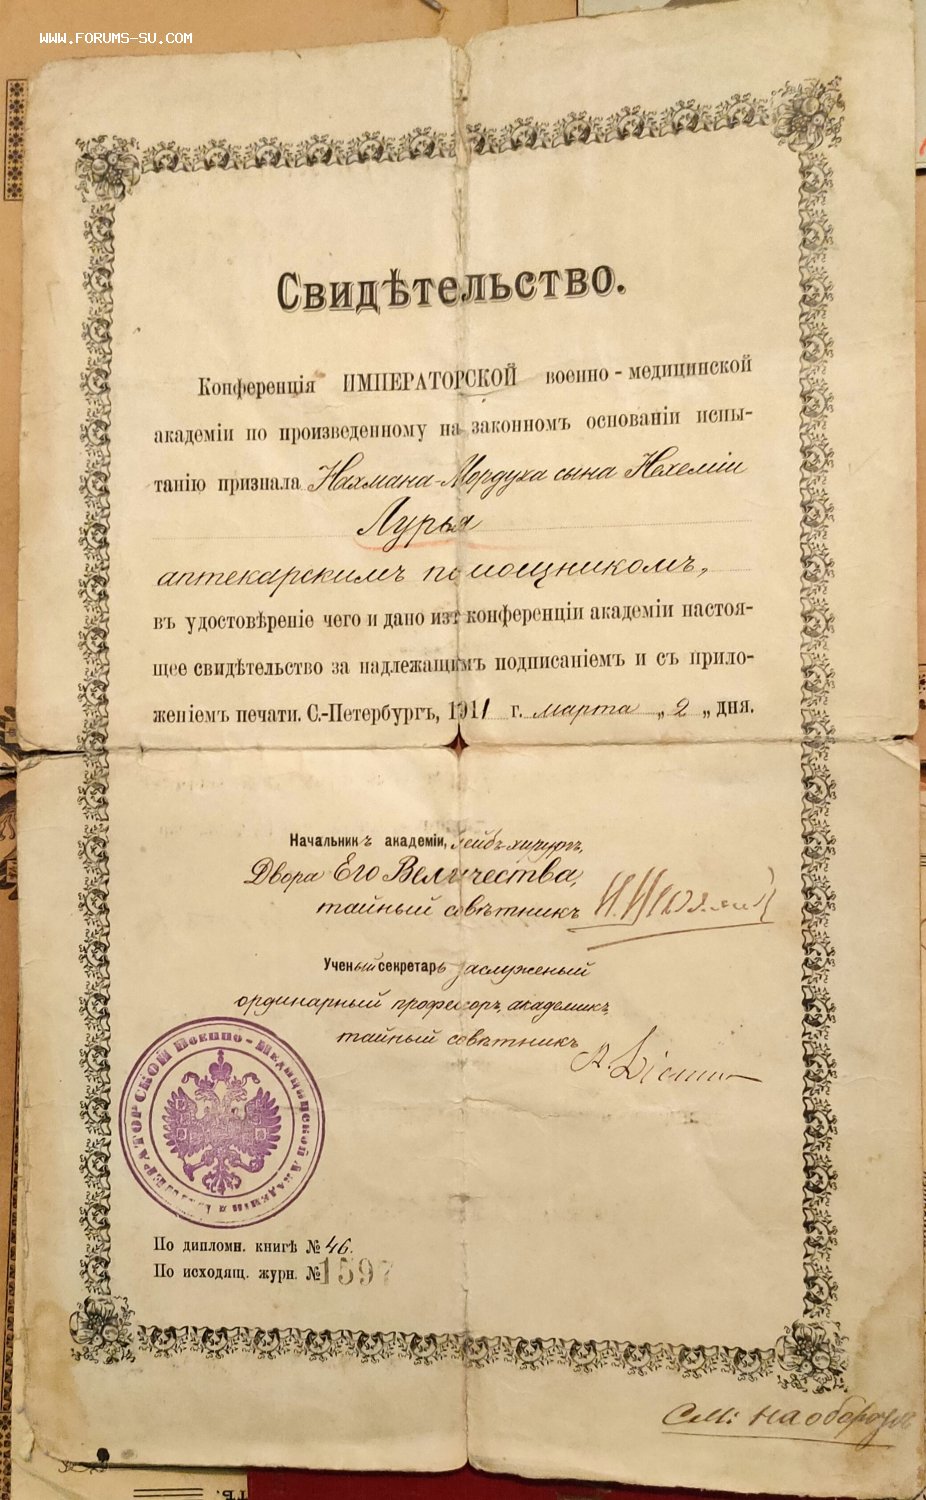 WWW.FORUMS-SU.COM
Свидѣтельство.
Конференція ИМПЕРАТОРСКОЙ военно-медицинской
академіи по произведенному на законномъ основаніи испы-
танію признала Нахмана-Мордуха сына Нехеміи
Лурья
аптекарскимъ помощникомъ,
въ удостовѣреніе чего и дано изъ конференціи академіи настоя-
щее свидѣтельство за надлежащимъ подписаніемъ и съ прило-
женіемъ печати. С.-Петербургъ, 1911 г. марта „2„ дня.
Начальникъ академіи, лейбъ-хирургъ,
Двора Его Величества,
тайный совѣтникъ
Ученый секретарь заслуженый
ординарный профессоръ, академикъ,
тайный совѣтникъ
А. Діанинъ
ИМПЕРАТОРСКОЙ Военно-Медицинской Академіи
По дипломн. книгѣ № 46.
По исходящ. журн. № 1597
См: на оборотѣ